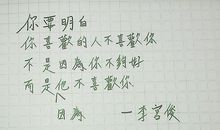 你要明白
你喜歡的人不喜歡你
不是因為你不夠好
而是他不喜歡你
因為
一李宮俊